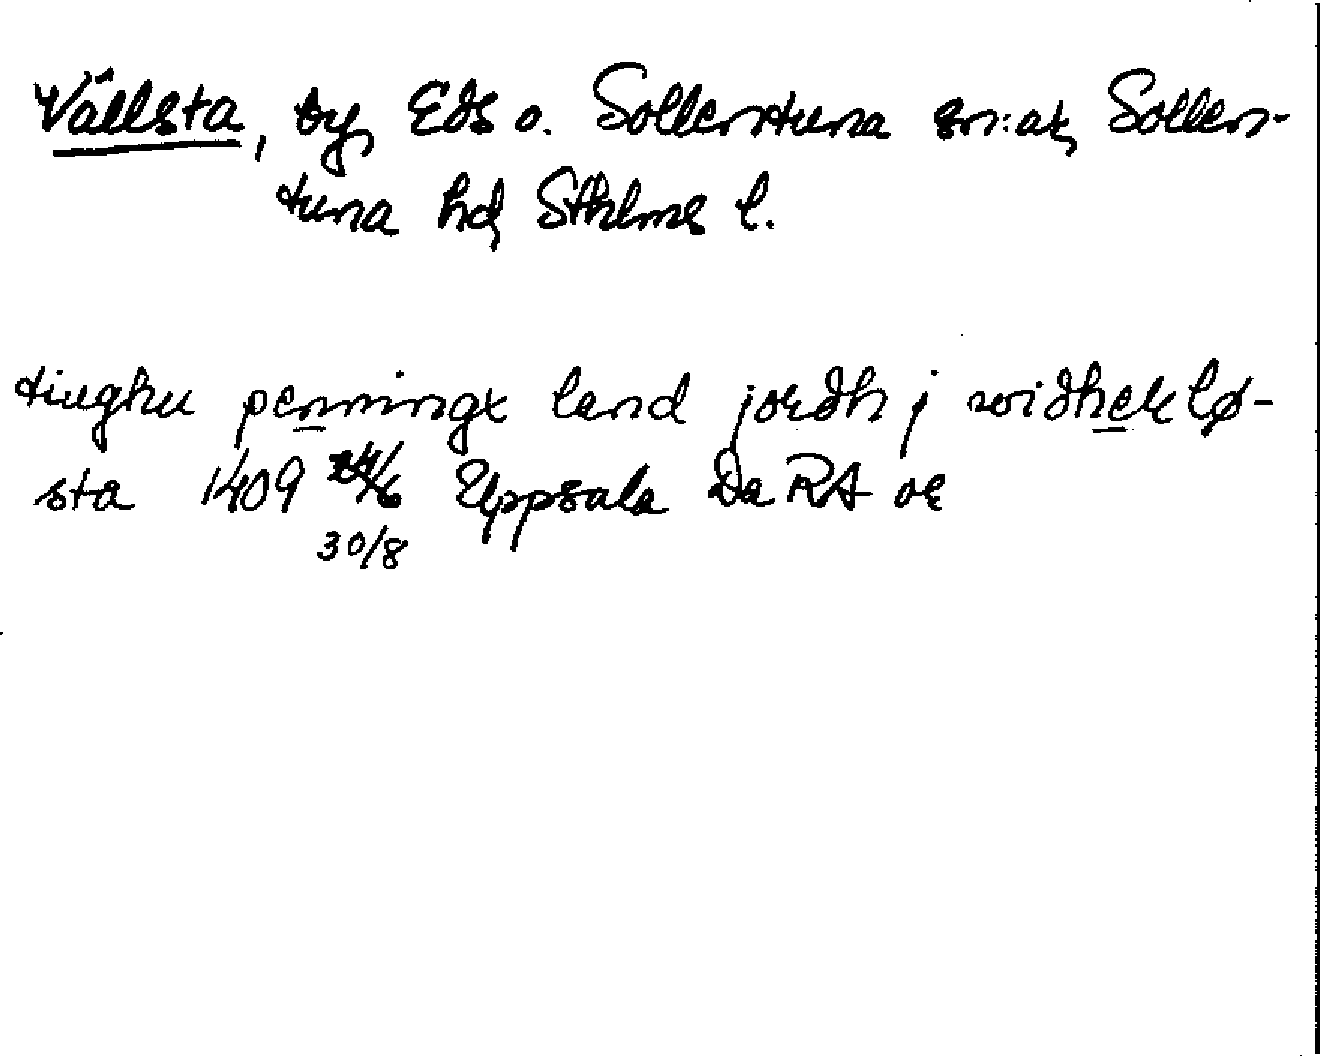 Vällsta, by, Eds o. Sollentuna sn:ar, Sollen-
tuna hd, Sthlms l.
tiughu penningx land jordh j widheklø-
sta 1409 24/6 Uppsala Da RA or
30/8